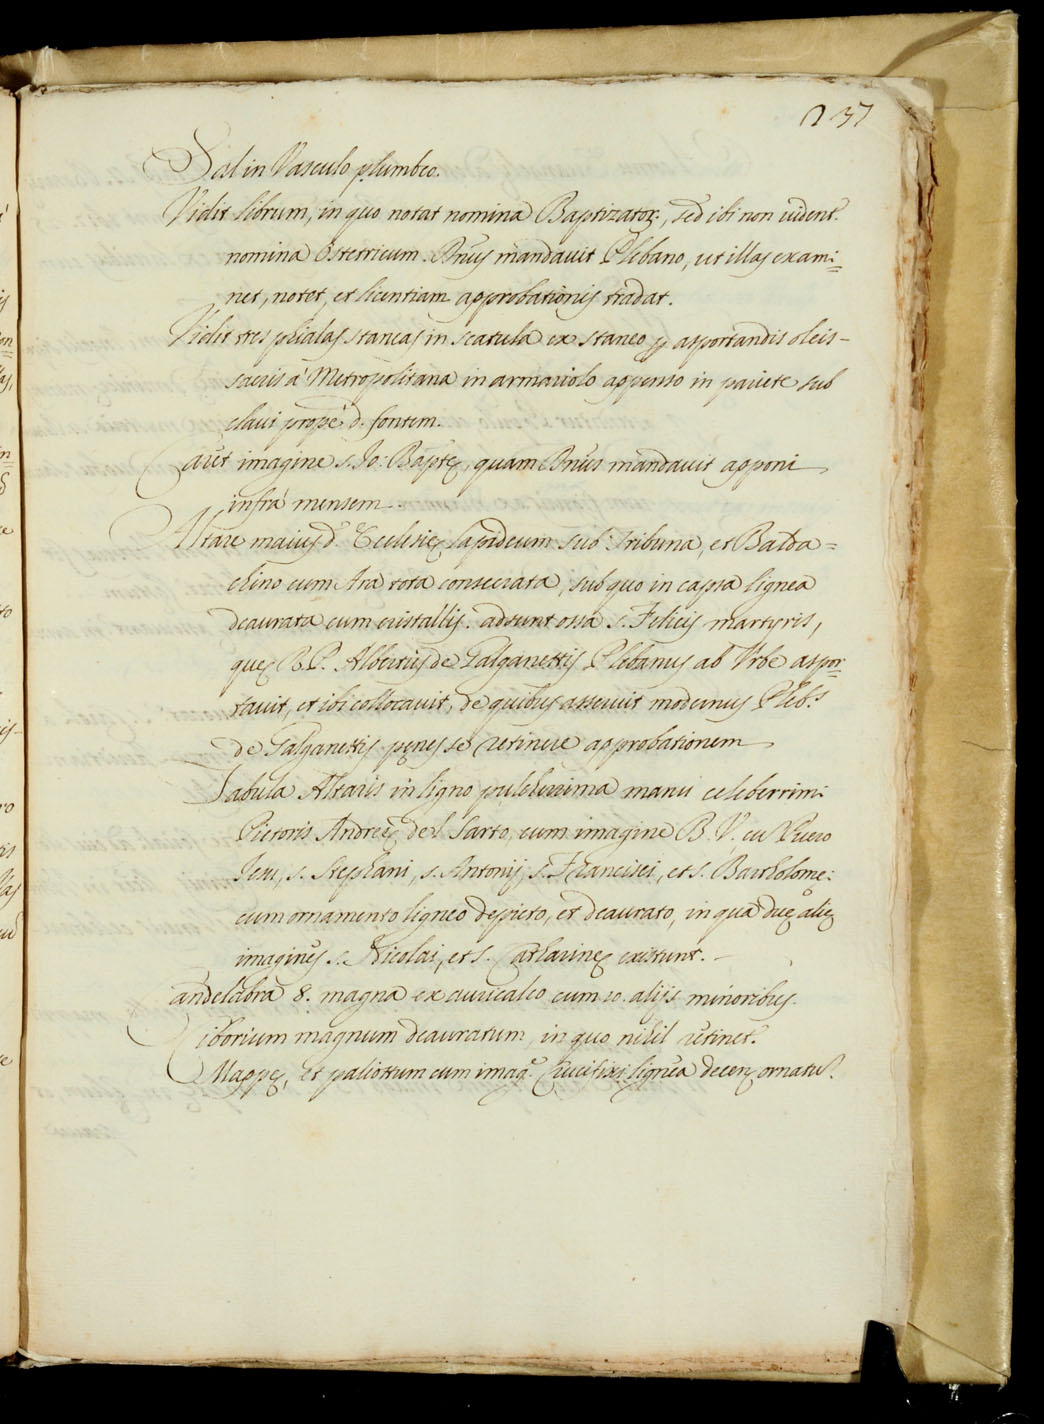 237
Sal in Vasculo plumbeo.
Vidit librum, in quo notat nomina Baptizatoꝝ, sed ibi non vident.
nomina Ostetricum. Dnus mandavit Plebano, ut illas exami=
net, notet, et licentiam approbationis tradat.
Vidit tres phialas staneas in scatula ex staneo ꝑ asportandis oleis-
sacris à Metropolitana in armariolo appenso in pariete sub
clavi propè d. fontem.
Caret imagine s. Jo: Baptę, quam Dnus mandavit apponi
infrà mensem.
Altare maius d. Ecclesię lapideum sub Tribuna, et Balda=
chino cum Ara tota consecrata, sub quo in capsa lignea
deaurata cum cristallis. adsunt ossa s. Felicis martyris,
quę R.P. Albertus de Galganettis Plebanus ab Urbe aspor=
tavit, et ibi collocavit, de quibus asseruit modernus Plebs.
de Galganettis penes se retinere approbationem
Tabula Altaris in ligno pulcherrima manu celeberrimi
Pictoris Andreę del Sarto, cum imagine B. V. cu Puero
Jesu, s. Stephani, s. Antonij, s. Francisci, et s. Bartholomę:
cum ornamento ligneo depicto, et deaurato, in quo duę alię
imagines s. Nicolai, et s. Catharinę existunt.-
Candelabra 8. magna ex auricalco cum 10. alijs minoribus.
Ciborium magnum deauratum, in quo nihil retinet.
Mappę, et paliottum cum imagē Crucifixi lignea decenꝫ ornatu.